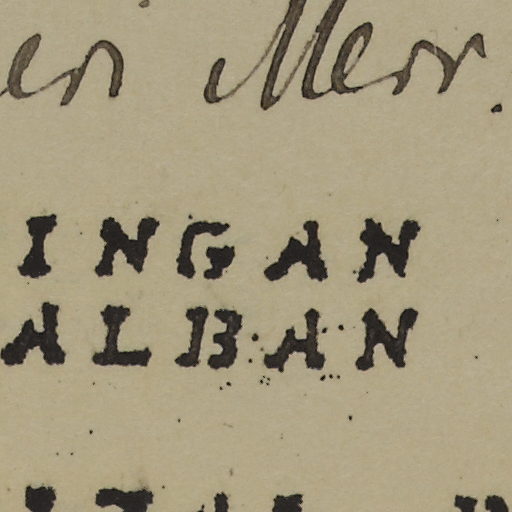 en Merr.
INGAN
ALBAN